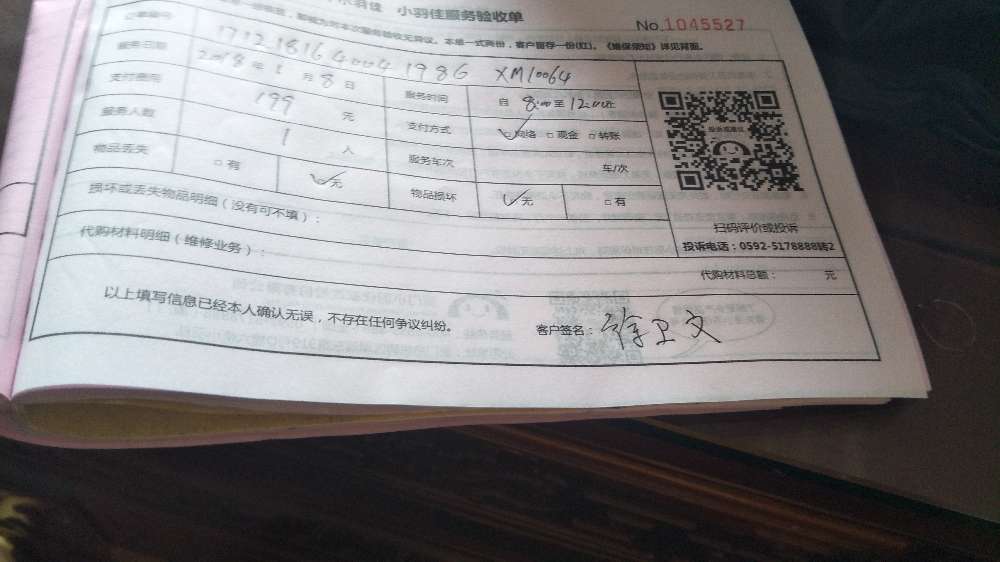 小羽佳 小羽佳服务验收单
No.1045527
对本次服务验收无异议。本单一式两份，客户留存一份(红)。《维保须知》详见背面。
订单编号 1712181640041986 XM10064
服务日期 2018年1月8日 服务时间 自8:00至12:00止
支付费用 199元 支付方式 ☑网络 □现金 □转账
服务人数 1人 服务车次 车/次
物品丢失 □有 ☑无 物品损坏 ☑无 □有
损坏或丢失物品明细（没有可不填）：
扫码评价或投诉
投诉电话：0592-5178888转2
代购材料明细（维修业务）：
代购材料总额： 元
以上填写信息已经本人确认无误，不存在任何争议纠纷。
客户签名：徐卫文